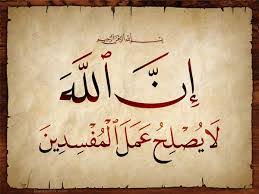 بسم الله الرحمن الرحيم
إِنَّ ٱللَّهَ
لَا يُصْلِحُ عَمَلَ ٱلْمُفْسِدِينَ